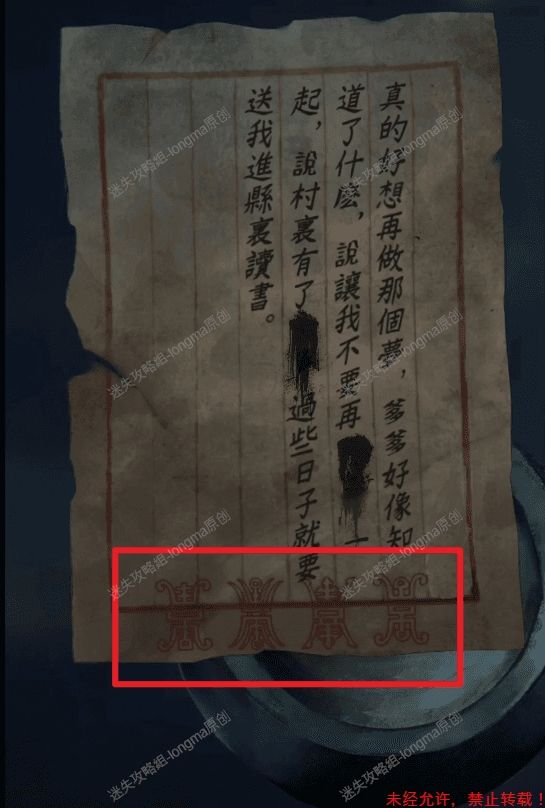 真的好想再做那個夢，爹爹好像知
道了什麼，說讓我不要再一
起，說村裏有了過些日子就要
送我進縣裏讀書。
迷失攻略组-longma原创
迷失攻略组-longma原创
迷失攻略组-longma原创
迷失攻略组-longma原创
迷失攻略组-longma原创
迷失攻略组-longma原创
迷失攻略组-longma原创
迷失攻略组-longma原创
未经允许，禁止转载！